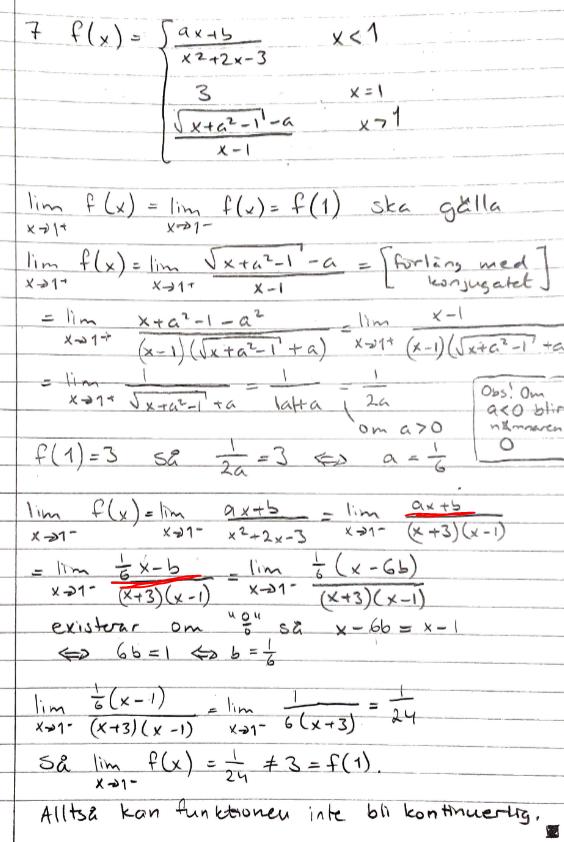 7 f(x) = { (ax+b)/(x²+2x-3) x<1
3 x=1
(√(x+a²-1) -a)/(x-1) x>1
lim x→1+ f(x) = lim x→1- f(x) = f(1) ska gälla
lim x→1+ f(x) = lim x→1+ (√(x+a²-1) -a)/(x-1) = [förläng med konjugatet]
= lim x→1+ (x+a²-1-a²)/((x-1)(√(x+a²-1) +a)) = lim x→1+ (x-1)/((x-1)(√(x+a²-1) +a
= lim x→1+ 1/(√(x+a²-1) +a) = 1/(|a|+a) = 1/2a
om a>0
Obs! Om
a<0 blir
nämnaren
0
f(1)=3 så 1/2a = 3 ⇔ a = 1/6
lim x→1- f(x) = lim x→1- (ax+b)/(x²+2x-3) = lim x→1- (ax+b)/((x+3)(x-1))
= lim x→1- (1/6 x-b)/((x+3)(x-1)) = lim x→1- (1/6 (x-6b))/((x+3)(x-1))
existerar om "0/0" så x-6b = x-1
⇔ 6b=1 ⇔ b = 1/6
lim x→1- (1/6 (x-1))/((x+3)(x-1)) = lim x→1- 1/(6(x+3)) = 1/24
Så lim x→1- f(x) = 1/24 ≠ 3 = f(1).
Alltså kan funktionen inte bli kontinuerlig.